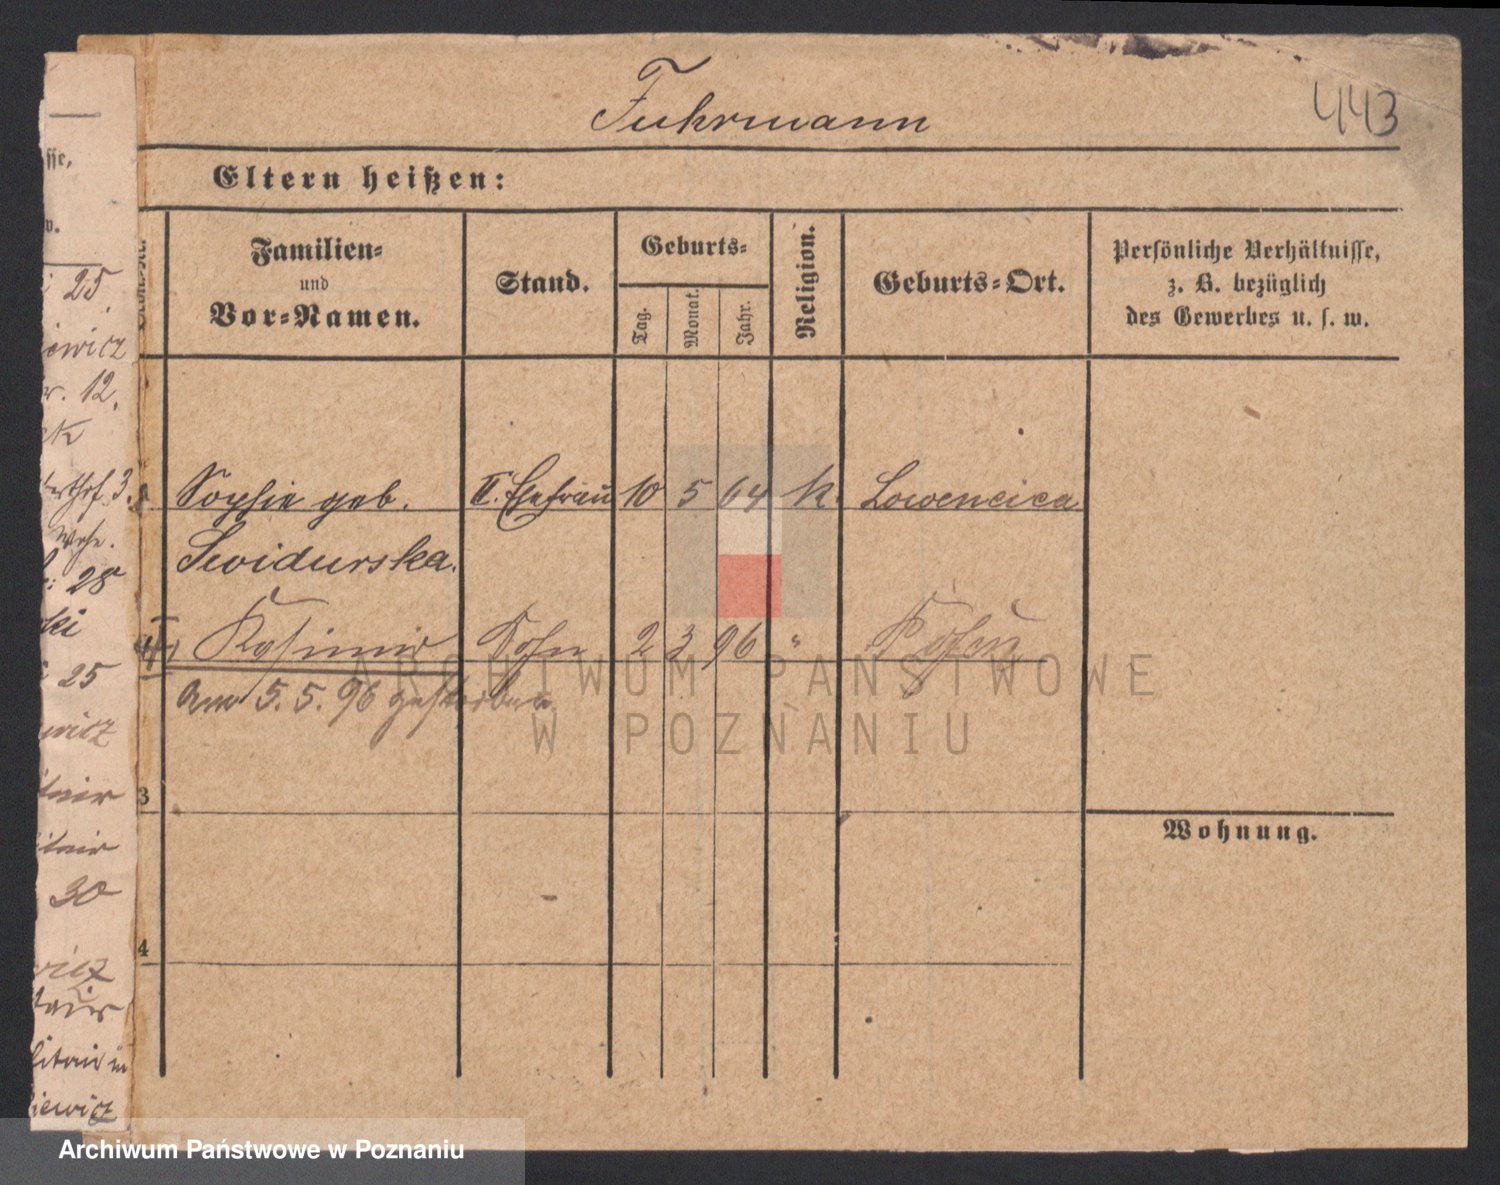 Fuhrmann
443
Eltern heißen:
Familien-
und
Vor-Namen.
Stand.
Geburts-
Tag.
Monat.
Jahr.
Religion.
Geburts-Ort.
Persönliche Verhältnisse,
z. B. bezüglich
des Gewerbes u. s. w.
Sophie geb. II. Ehefrau 10 5 64 k. Lowencica
Swidurska.
Kasimir Sohn 2 3 96 " Posen
Am 5. 5. 96 gestorben
3
Wohnung.
4
sse,
w.
25
iewicz
r. 12.
3.
28
25
wicz
30
iewicz
ARCHIWUM PAŃSTWOWE
W POZNANIU
Archiwum Państwowe w Poznaniu